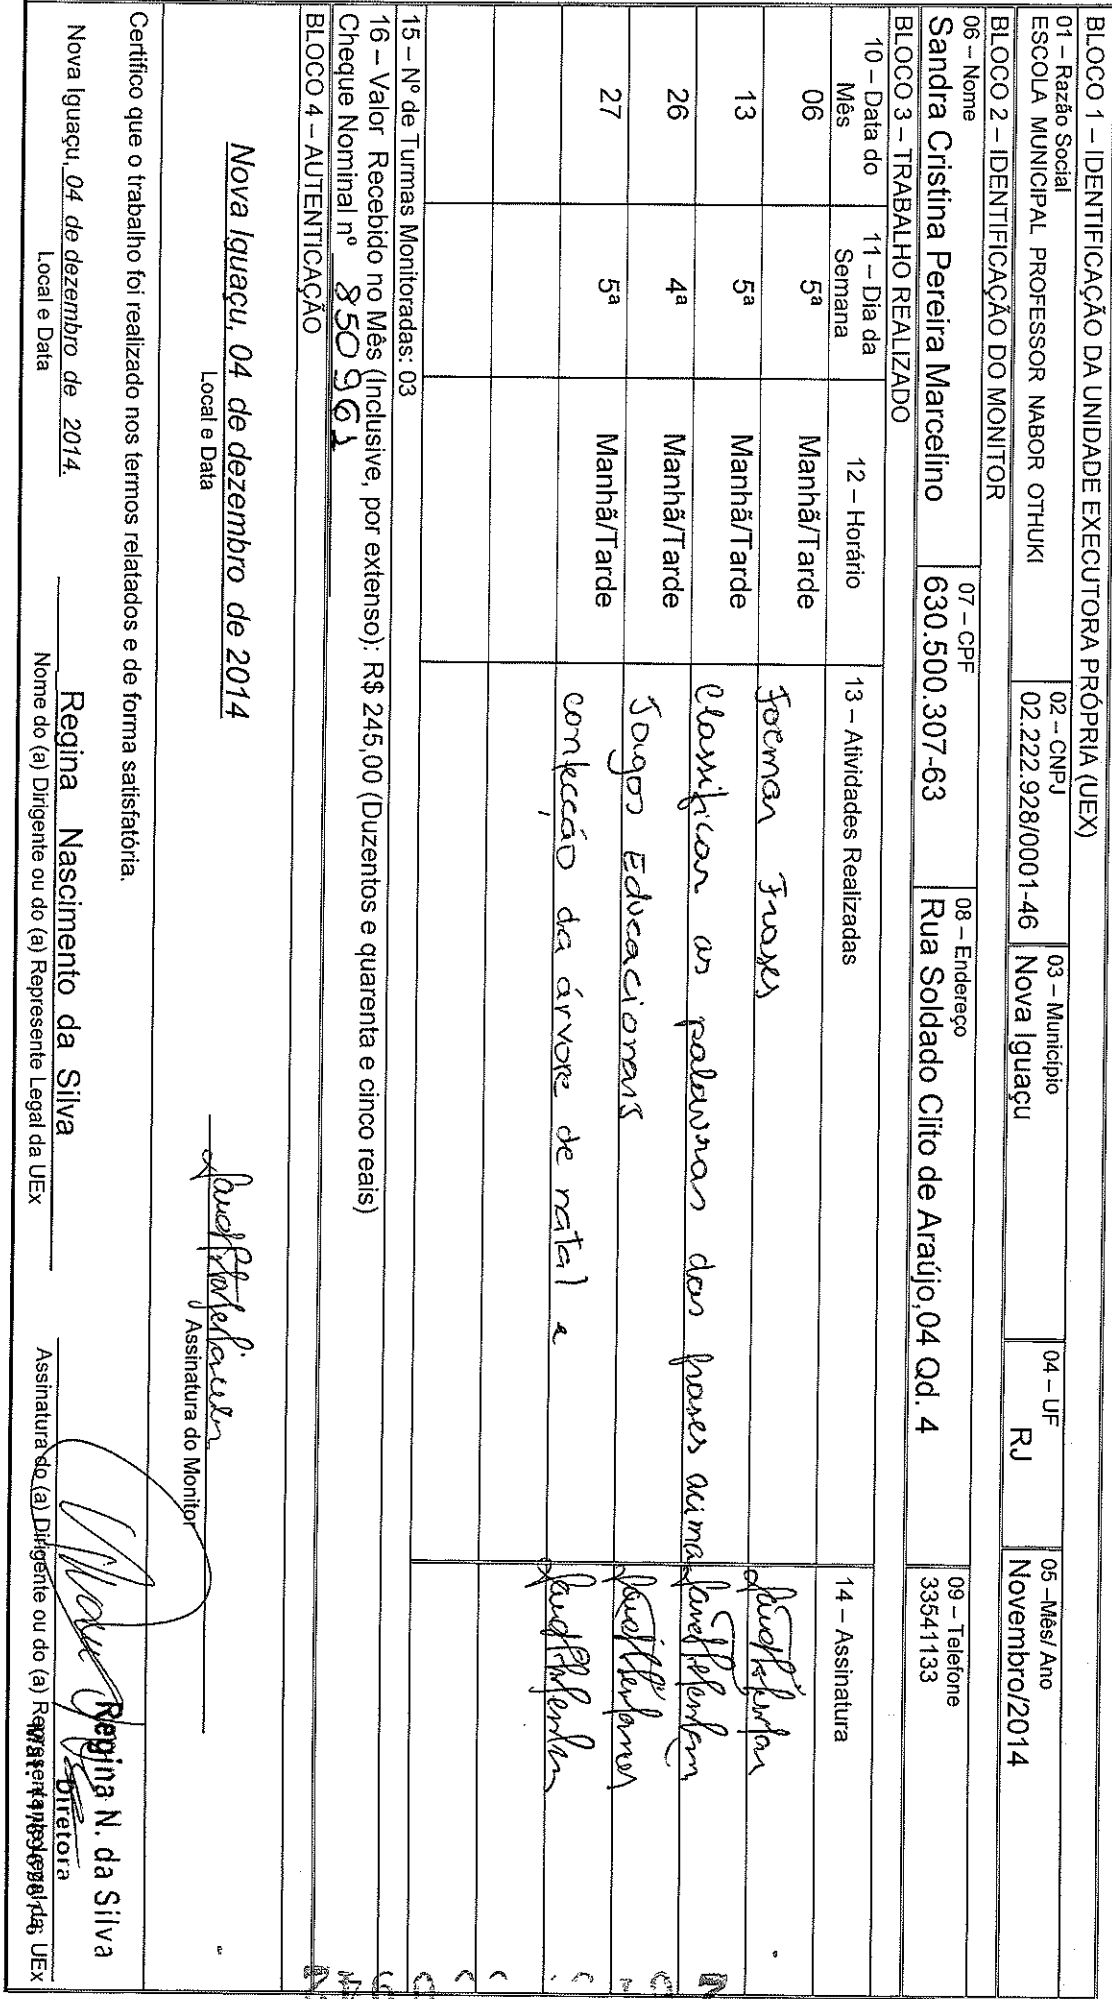 BLOCO 1 – IDENTIFICAÇÃO DA UNIDADE EXECUTORA PRÓPRIA (UEX)
01 – Razão Social 02 – CNPJ 03 – Município 04 – UF 05 –Mês/ Ano
ESCOLA MUNICIPAL PROFESSOR NABOR OTHUKI 02.222.928/0001-46 Nova Iguaçu RJ Novembro/2014
BLOCO 2 – IDENTIFICAÇÃO DO MONITOR
06 – Nome 07 – CPF 08 – Endereço 09 – Telefone
Sandra Cristina Pereira Marcelino 630.500.307-63 Rua Soldado Clito de Araújo,04 Qd. 4 33541133
BLOCO 3 – TRABALHO REALIZADO
10 – Data do Mês 11 – Dia da Semana 12 – Horário 13 – Atividades Realizadas 14 – Assinatura
06 5ª Manhã/Tarde Formar Frases
13 5ª Manhã/Tarde Classificar as palavras das frases acima
26 4ª Manhã/Tarde Jougos Educacionais
27 5ª Manhã/Tarde confecção da árvore de natal
15 – Nº de Turmas Monitoradas: 03
16 – Valor Recebido no Mês (Inclusive, por extenso): R$ 245,00 (Duzentos e quarenta e cinco reais)
Cheque Nominal nº 850961
BLOCO 4 – AUTENTICAÇÃO
Nova Iguaçu, 04 de dezembro de 2014
Local e Data Assinatura do Monitor
Certifico que o trabalho foi realizado nos termos relatados e de forma satisfatória.
Regina N. da Silva
Diretora
Nova Iguaçu, 04 de dezembro de 2014. Regina Nascimento da Silva
Local e Data Nome do (a) Dirigente ou do (a) Represente Legal da UEx Assinatura do (a) Dirigente ou do (a) Representante Legal da UEx